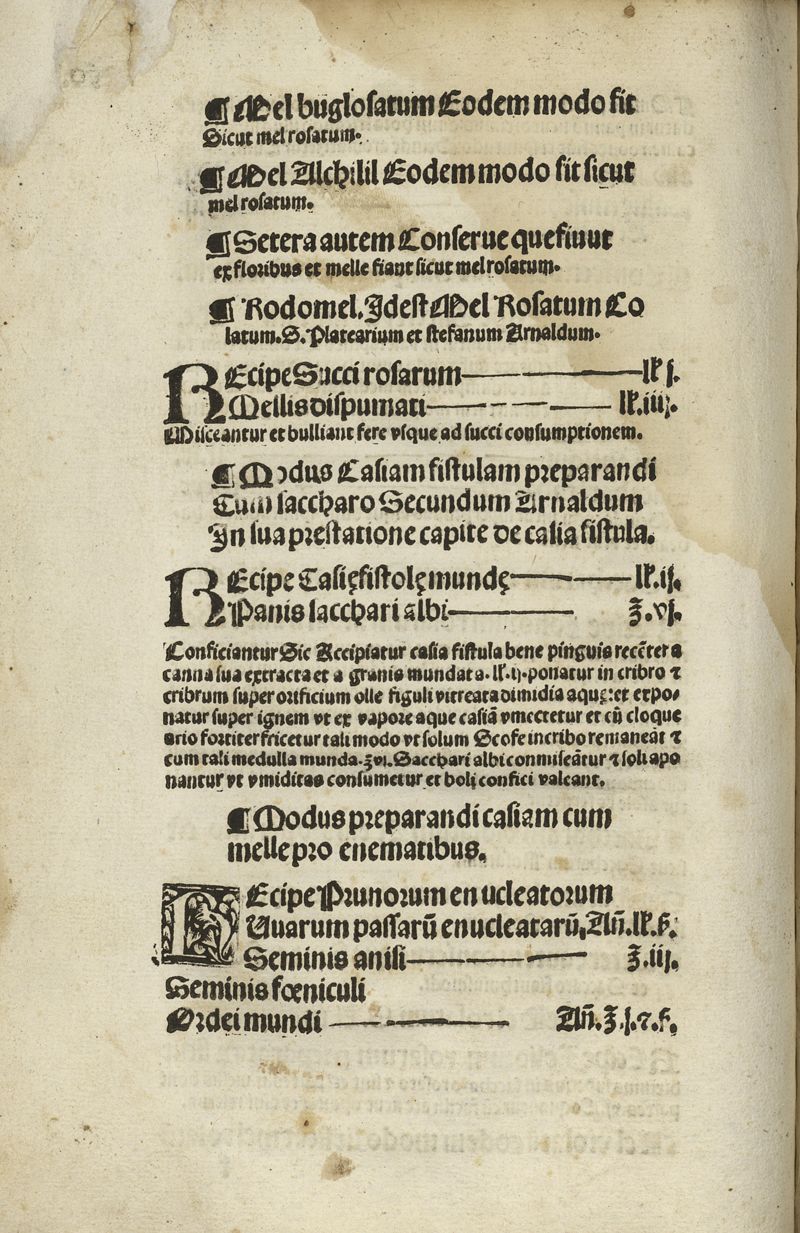 ¶ Mel buglosatum Eodem modo fit
Sicut mel rosatum.
¶ Mel Alchilil Eodem modo fit sicut
mel rosatum.
¶ Setera autem Conserue que fiuut
ex floribus et melle fiant sicut mel rosatum.
¶ Rodomel. Idest Mel Rosatum Co
latum. S. Platearium et stefanum Arnaldum.
REcipe Succi rosarum — — — lꝶ j.
Mellis dispumati — — — lꝶ. iiij.
Misceantur et bulliant fere vsque ad succi consumptionem.
¶ Modus Casiam fistulam preparandi
Cum sacchàro Secundum Arnaldum
In sua prestatione capite de casia fistula.
REcipe Casięfistolę mundę — — lꝶ. ij.
Panis sacchari albi — — ℥. vj.
Conficiantur Sic Accipiatur casia fistula bene pinguis recẽter a
canna sua extracta et a granis mundata. lꝶ. ij. ponatur in cribro ⁊
cribrum super orificium olle figuli vitreata dimidia aquę: et expo-
natur super ignem vt ex vapore aque casiã vmectetur et cũ cloque
ario fortiter fricetur tali modo vt solum Scofe in cribo remaneãt ⁊
cum tali medulla munda. ℥vj. Sacchari albi conmiseãtur ⁊ soli apo
nantur vt vmiditas consumetur et boli confici valeant.
¶ Modus preparandi casiam cum
melle pro enematibus.
REcipe Prunorum enucleatorum
Vuarum passarũ enucleatarũ, Añ. lꝶ. ẞ.
Seminis anisi — — — ℥. iij.
Seminis fœniculi
Ordei mundi — — — Añ. ℥. j. ⁊. ẞ.